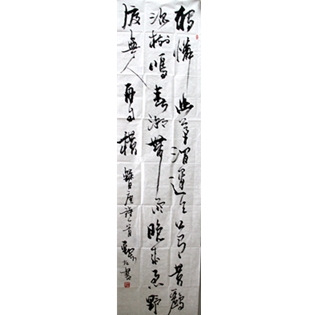 獨憐幽草澗邊生上有黃鸝
深樹鳴春潮帶雨晚來急野
渡無人舟自橫 唐詩一首